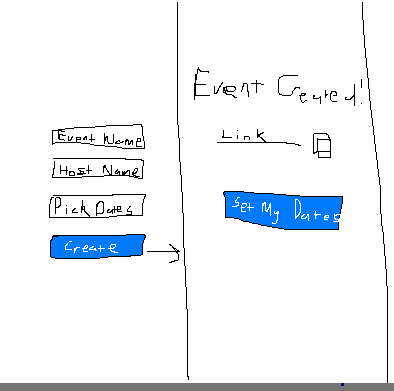 Event Name
Host Name
Pick Dates
Create
Event Created!
Link
Set My Dates